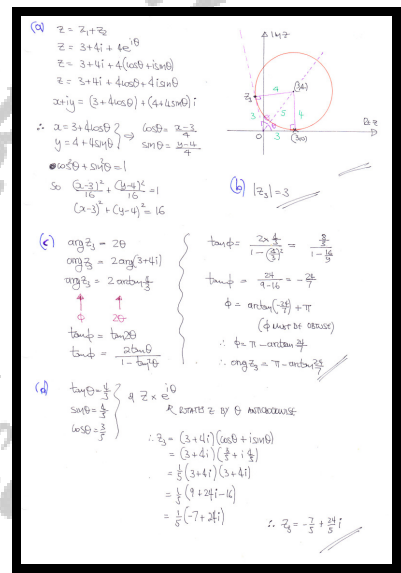 (a) Z = Z₁+Z₂
Z = 3+4i + 4e^{iθ}
Z = 3+4i + 4(cosθ+isinθ)
Z = 3+4i + 4cosθ + 4isinθ
x+iy = (3+4cosθ)+(4+4sinθ)i
∴ x = 3+4cosθ } ⇒ cosθ = (x-3)/4
y = 4+4sinθ sinθ = (y-4)/4
cos²θ + sin²θ = 1
So (x-3)²/16 + (y-4)²/16 = 1
(x-3)² + (y-4)² = 16
Im Z
Z₃
4
(3,4)
3
5
4
θ
θ
0
3
(3,0)
Re Z
(b) |Z₃| = 3
(c) arg Z₃ = 2θ
arg Z₃ = 2arg(3+4i)
arg Z₃ = 2arctan 4/3
ϕ 2θ
tanϕ = tan2θ
tanϕ = 2tanθ/(1-tan²θ)
tanϕ = (2×4/3)/(1-(4/3)²) = (8/3)/(1-16/9)
tanϕ = 24/(9-16) = -24/7
ϕ = arctan(-24/7) + π
(ϕ MUST BE OBTUSE)
∴ ϕ = π - arctan 24/7
∴ arg Z₃ = π - arctan 24/7
(d) tanθ = 4/3
sinθ = 4/5
cosθ = 3/5
& Z × e^{iθ}
ROTATES Z BY θ ANTICLOCKWISE
∴ Z₃ = (3+4i)(cosθ+isinθ)
= (3+4i)(3/5 + i 4/5)
= 1/5(3+4i)(3+4i)
= 1/5(9+24i-16)
= 1/5(-7+24i)
∴ Z₃ = -7/5 + 24/5 i